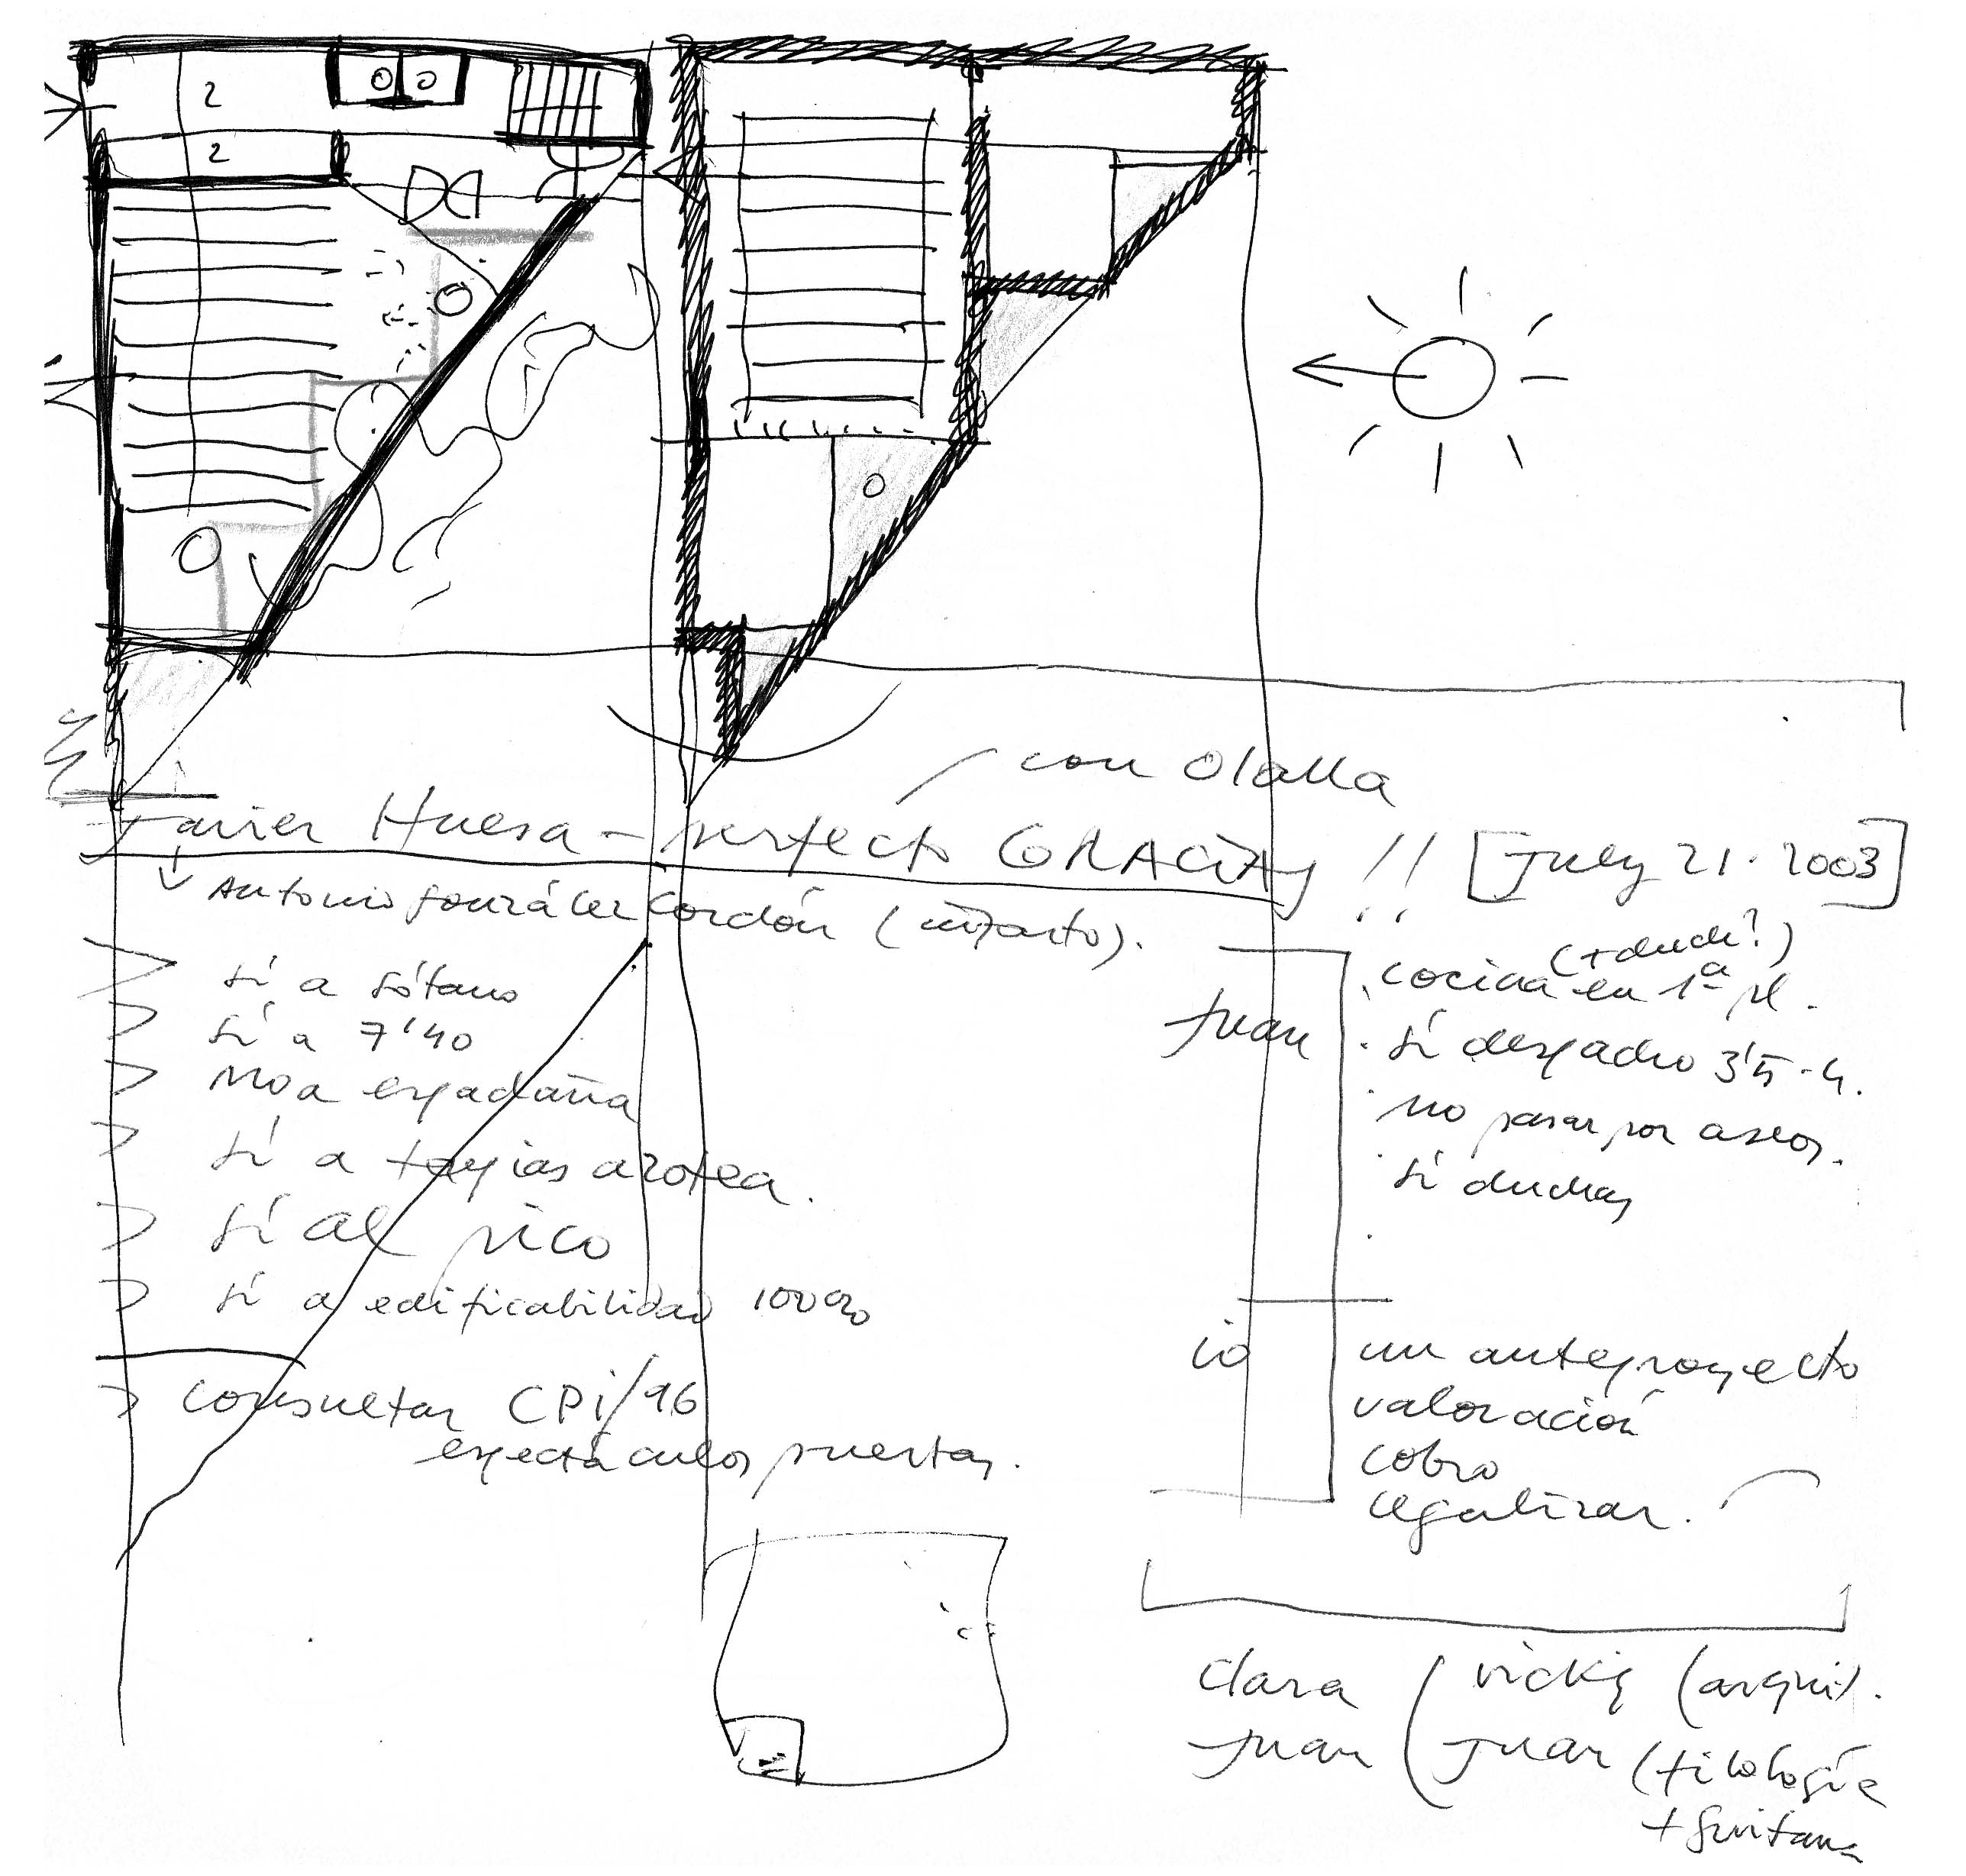 2
2
con Olalla
Javier Huesa - perfecto GRACias !! [July 21. 2003]
Antonio González Cordón (infarto).
sí a sótano
sí a 7'40
No a espadaña
sí a tapias azotea.
sí al pico
sí a edificabilidad 100%
consultar CPi/96
espectáculos puertas.
Juan
(+ duch?)
cocina en 1ª pl.
sí despacho 3'5-4.
no pasar por aseos.
sí duchas
io
un anteproyecto
valoración
cobro
legalizar.
clara ( vicky (arqui).
Juan ( Juan (filología
+ guitarra